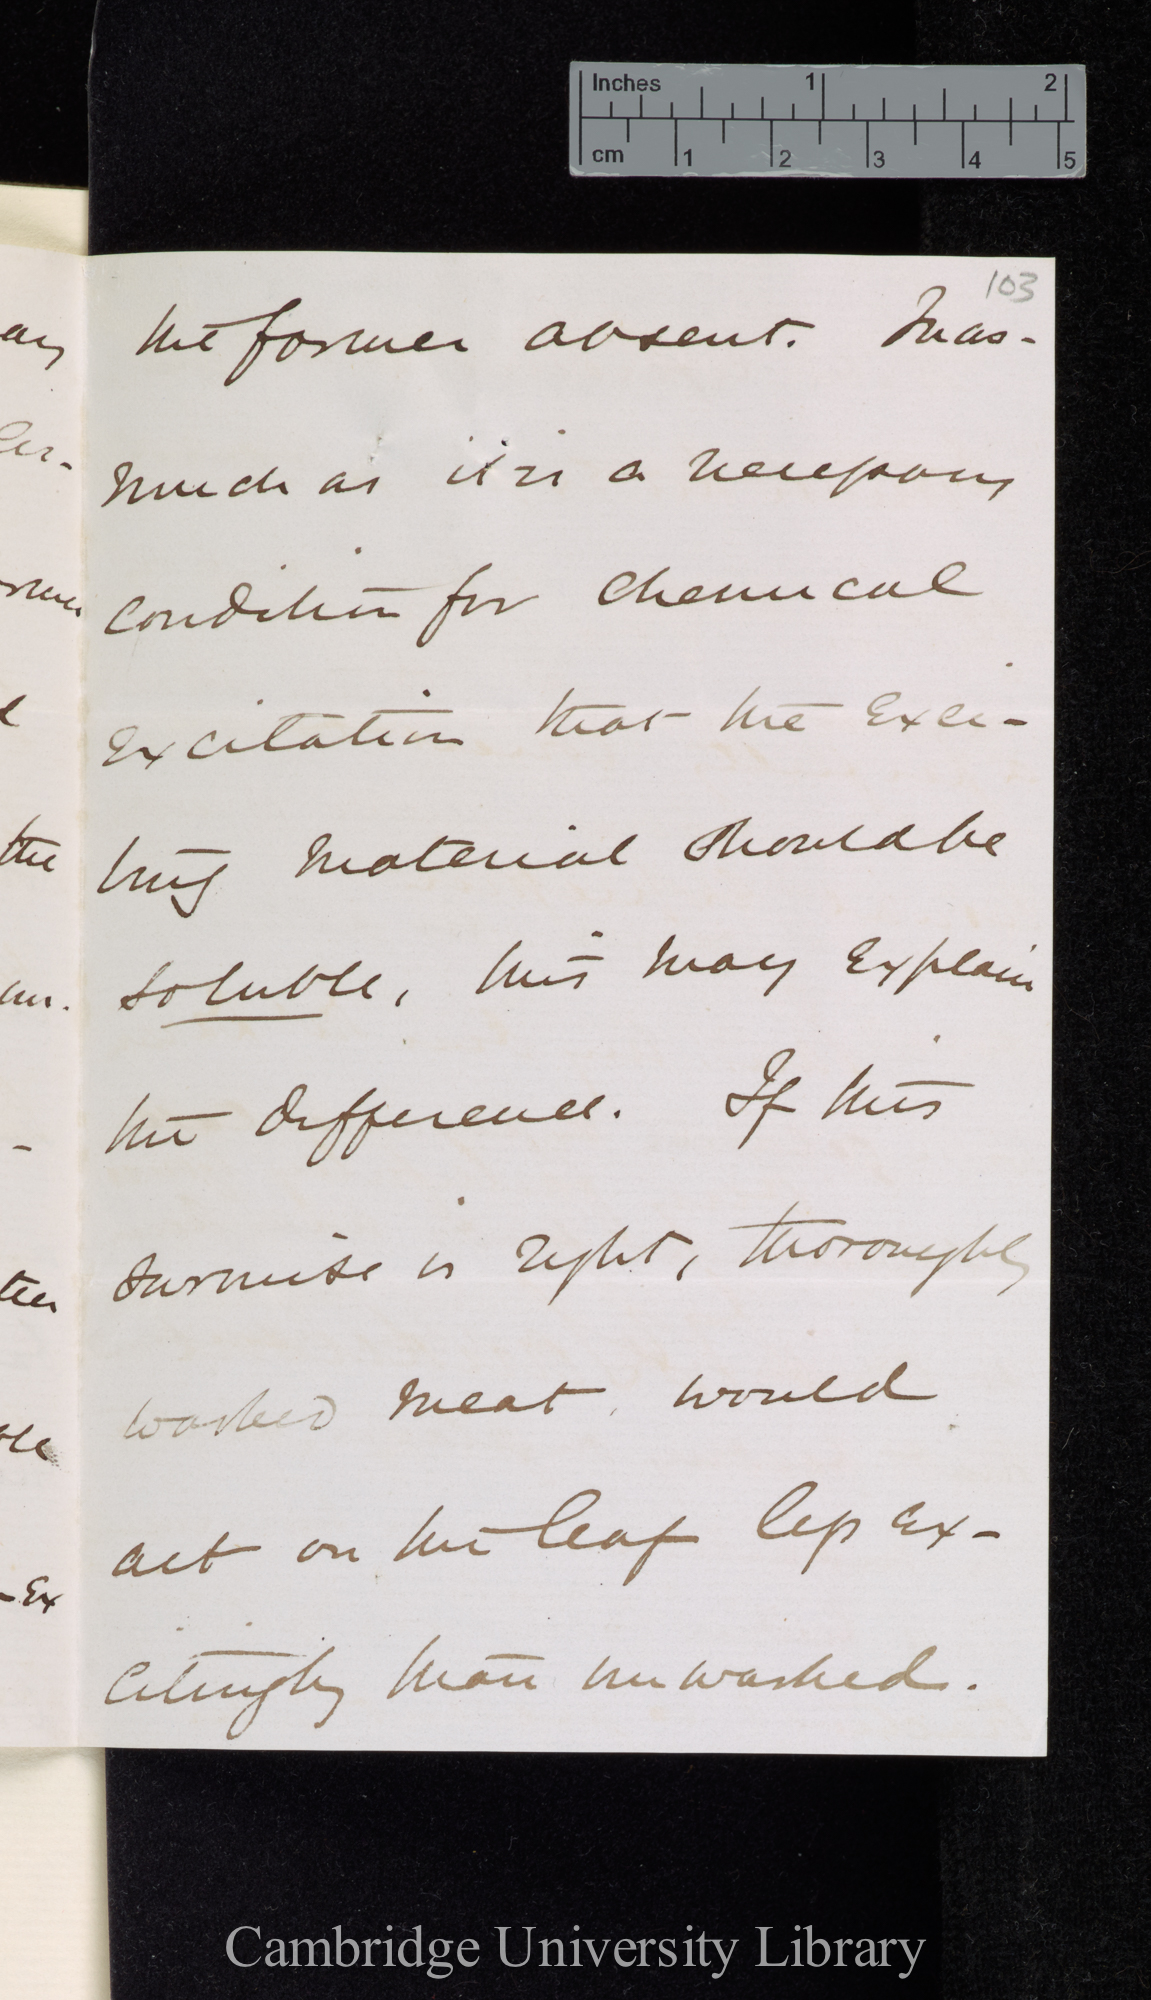 Inches 1 2
cm 1 2 3 4 5
103
the former absent. Inas-
much as it is a necessary
condition for chemical
excitation that the exci-
ting material should be
soluble, this may explain
the difference. If this
surmise is right, thoroughly
washed meat, would
act on the leaf less ex-
citingly than unwashed.
the
-Ex
Cambridge University Library